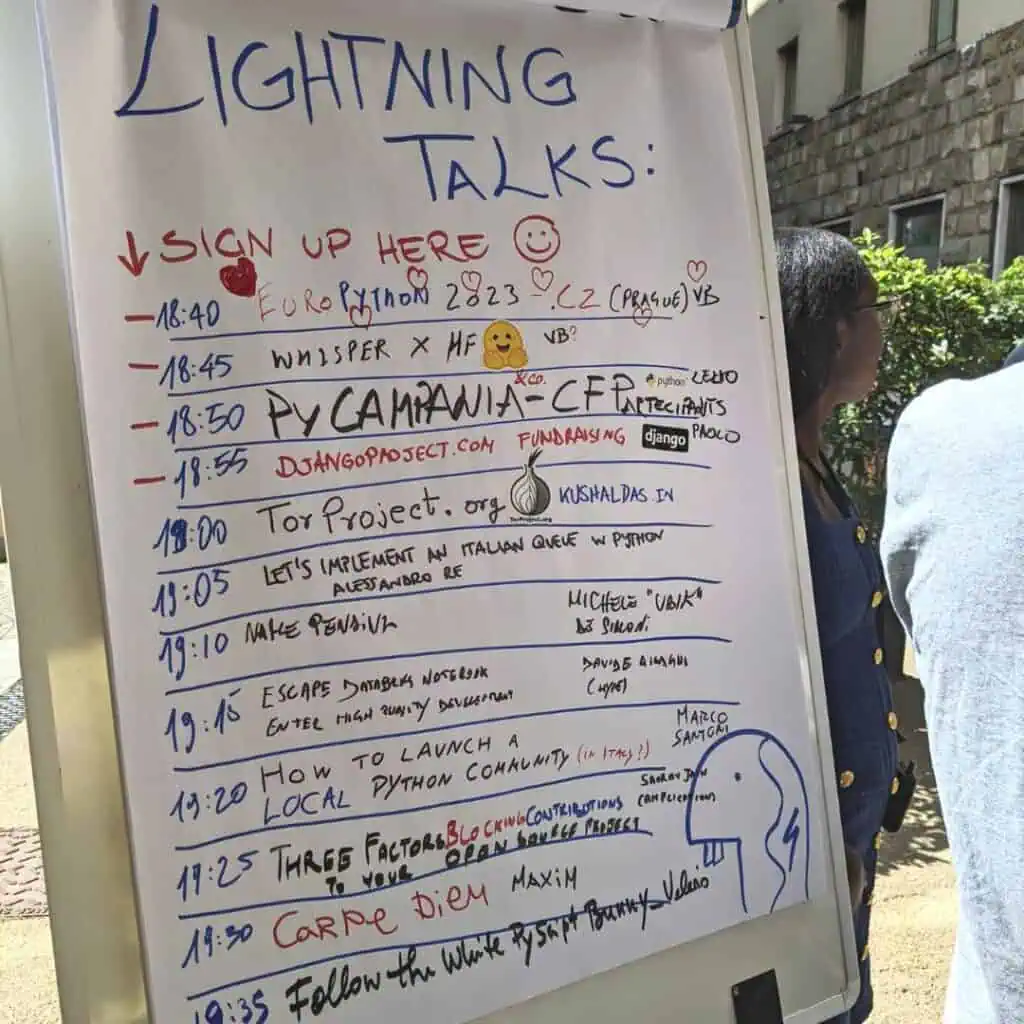 LIGHTNING
TALKS:
↓ SIGN UP HERE
18:40 EUROPYTHON 2023 - .CZ (PRAGUE) VB
18:45 WHISPER X HF VB?
18:50 PYCAMPANIA & CO. - CFP ARTECIPANTS python
18:55 DJANGOPROJECT.COM FUNDRAISING django PAOLO
19:00 TorProject.org TorProject.org KUSHALDAS.IN
19:05 LET'S IMPLEMENT AN ITALIAN QUEUE W PYTHON
ALESSANDRO RE
19:10 MICHELE "UBIK"
DE SIMONI
19:15 ESCAPE NOTEBOOK DAVIDE
ENTER HIGH QUALITY DEVELOPMENT (HYPE)
19:20 HOW TO LAUNCH A MARCO
LOCAL PYTHON COMMUNITY (IN ITALY?) SANTONI
19:25 THREE FACTORS BLOCKING CONTRIBUTIONS SAURAV JAIN
TO YOUR OPEN SOURCE PROJECT
19:30 CARPE DIEM MAXIM
19:35 Follow the White PyScript Bunny - Valerio